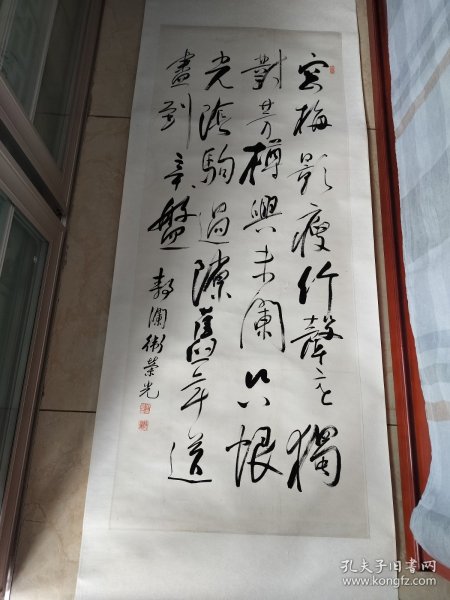 窓梅影瘦竹聲獨
對芳樽興未闌只恨
光陰駒過隙舊年道
盡到辛盤
静瀾衛榮光
孔夫子旧书网
www.kongfz.com